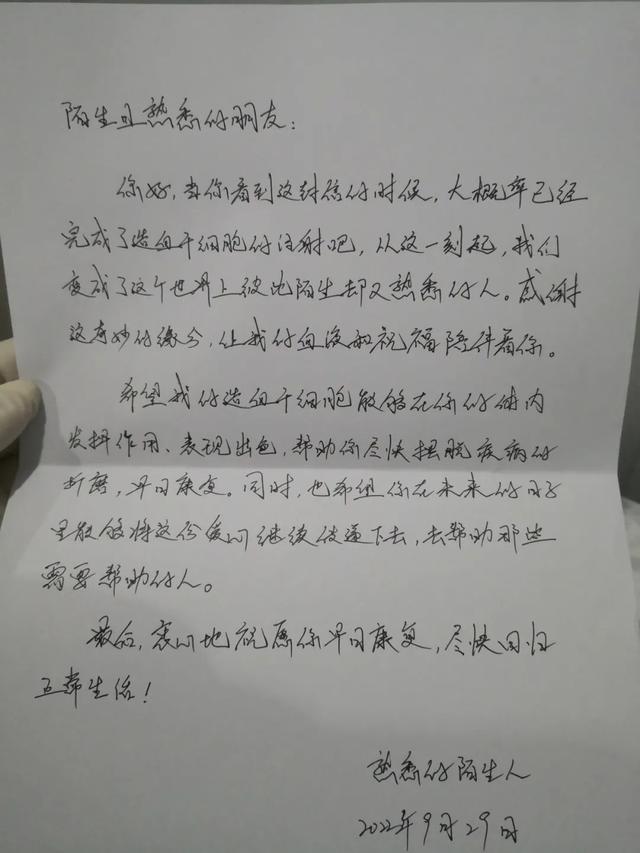 陌生且熟悉的朋友:
你好,当你看到这封信的时候,大概率已经
完成了造血干细胞的注射吧,从这一刻起,我们
变成了这个世界上彼此陌生却又熟悉的人。感谢
这奇妙的缘分,让我的血液和祝福陪伴着你。
希望我的造血干细胞能够在你的体内
发挥作用、表现出色,帮助你尽快摆脱疾病的
折磨,早日康复。同时,也希望你在未来的日子
里能够将这份爱心继续传递下去,去帮助那些
需要帮助的人。
最后,衷心地祝愿你早日康复,尽快回归
正常生活!
熟悉的陌生人
2022年9月29日